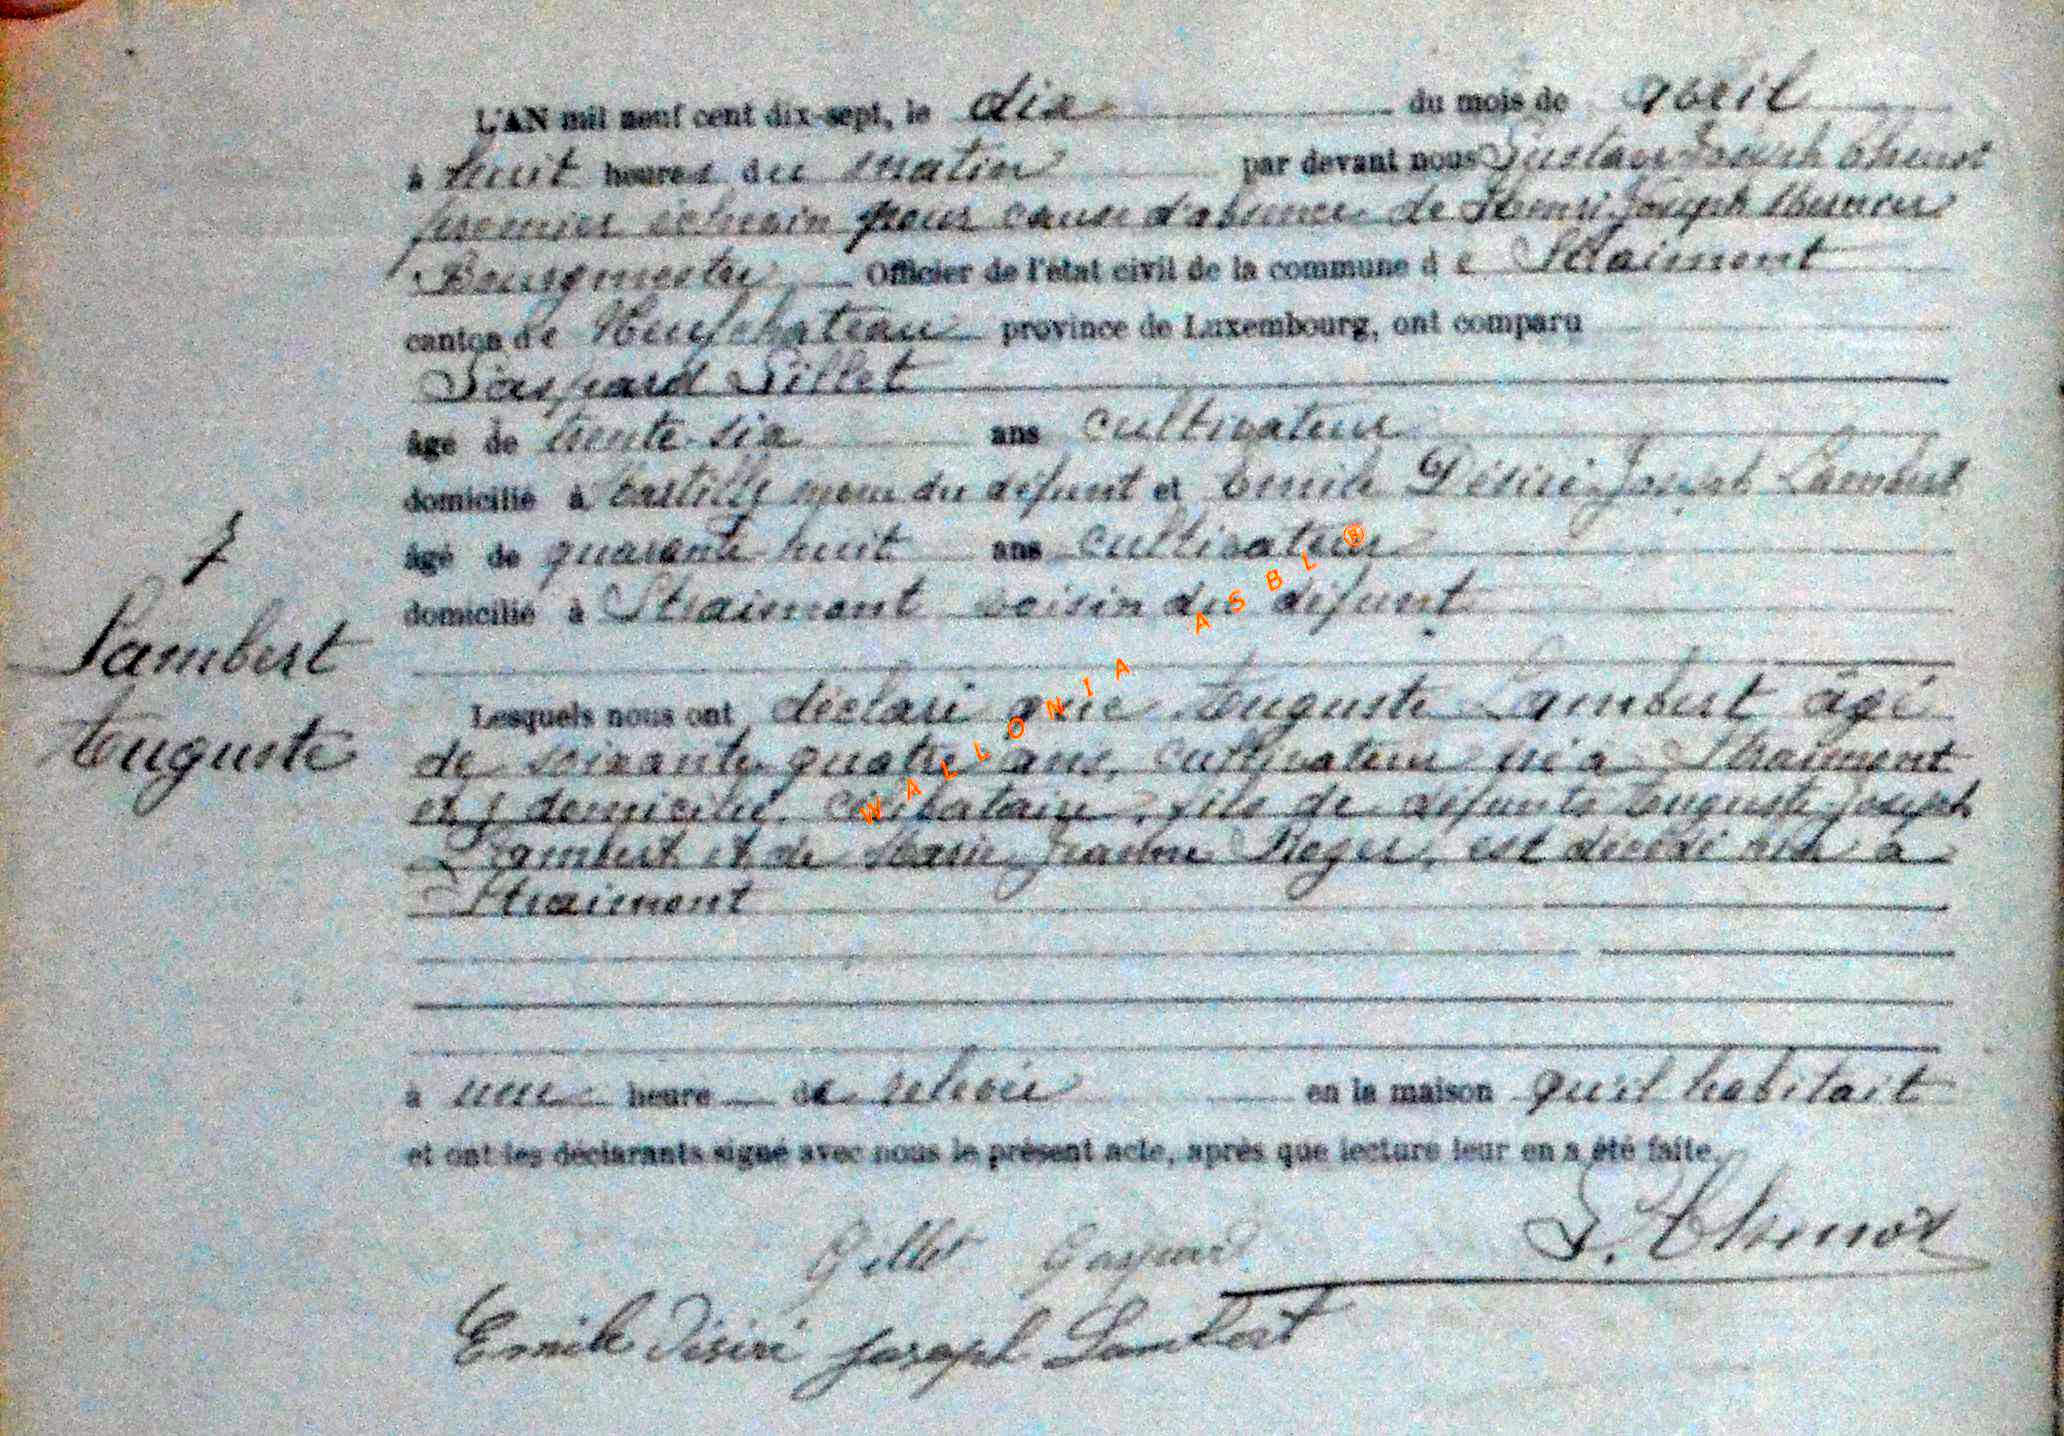 L'AN mil neuf cent dix-sept, le dix du mois de avril
à huit heures du matin par devant nous Gustave Joseph
premier échevin pour cause d'absence de Henri Joseph
Bourgmestre Officier de l'état civil de la commune de Straimont
canton de Neufchateau province de Luxembourg, ont comparu
Gaspard Gillet
âgé de trente-six ans cultivateur
domicilié à du défunt et Emile Désiré Joseph Lambert
âgé de quarante huit ans cultivateur
domicilié à Straimont voisin du défunt
7
Lambert
Auguste
Lesquels nous ont déclaré que Auguste Lambert âgé
de soixante quatre ans, cultivateur né à Straimont
et y domicilié, célibataire, fils de défunts Auguste Joseph
Lambert et de Marie Jeanne Roger, est décédé hier à
Straimont
à une heure de relevée en la maison qu'il habitait
et ont les déclarants signé avec nous le présent acte, après que lecture leur en a été faite.
Gillet Gaspard
Emile Désiré Joseph Lambert
WALLONIA ASBL ®